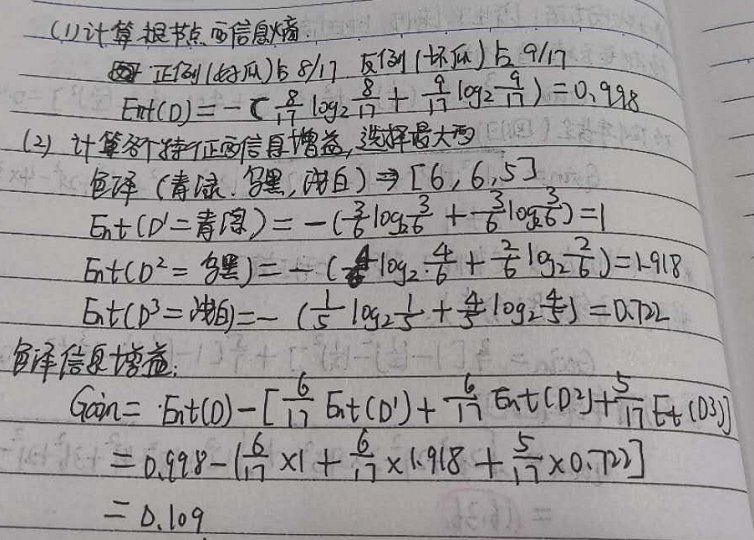 (1)计算根节点的信息熵
正例(好瓜)占 8/17 反例(坏瓜)占 9/17
Ent(D)=-( 8/17 log₂ 8/17 + 9/17 log₂ 9/17 )=0.998
(2) 计算各个特征的信息增益,选择最大的
色泽 (青绿、乌黑,浅白) ⇒ [6, 6, 5]
Ent(D¹=青绿)=-(3/6 log₂ 3/6 + 3/6 log₂ 3/6)=1
Ent(D²=乌黑)=-(4/6 log₂ 4/6 + 2/6 log₂ 2/6)=1.918
Ent(D³=浅白)=-(1/5 log₂ 1/5 + 4/5 log₂ 4/5)=0.722
色泽信息增益:
Gain= Ent(D)-[6/17 Ent(D¹)+ 6/17 Ent(D²)+5/17 Et(D³)]
=0.998-[6/17 ×1 + 6/17 ×1.918 + 5/17 ×0.722]
=0.109